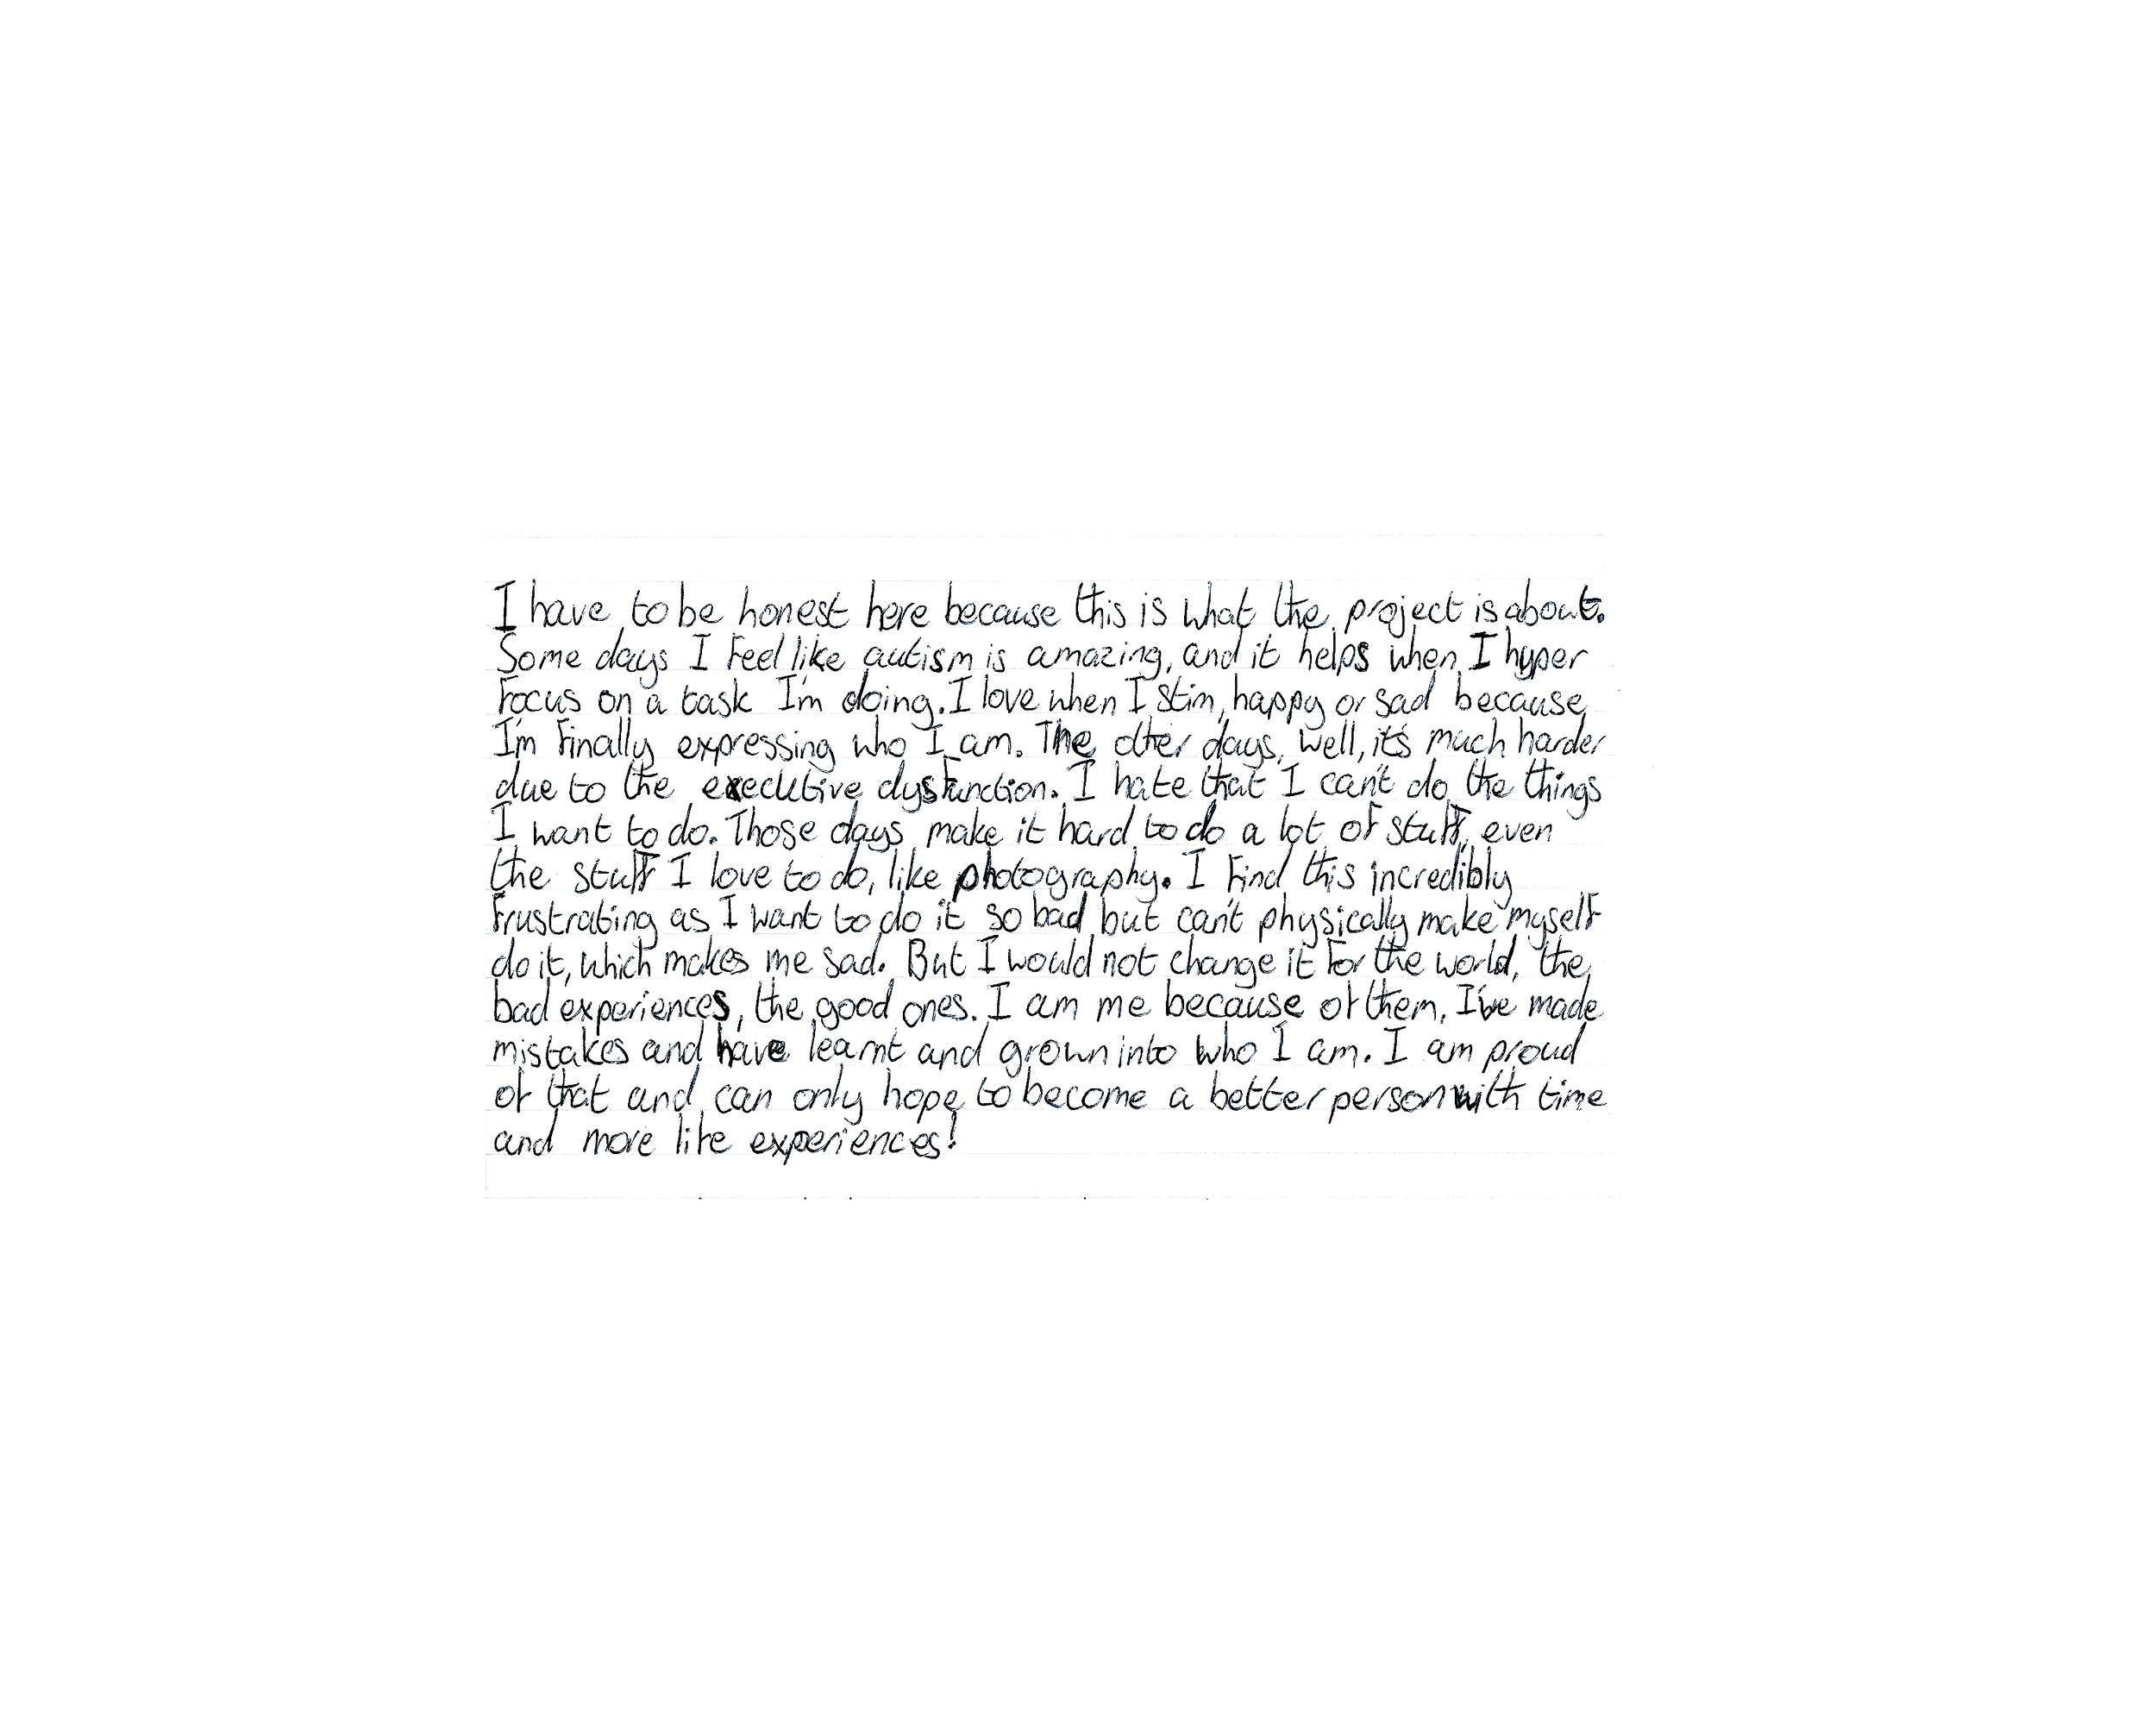 I have to be honest here because this is what the project is about.
Some days I feel like autism is amazing, and it helps when I hyper
focus on a task I'm doing. I love when I stim, happy or sad because
I'm finally expressing who I am. The other days, well, it's much harder
due to the executive dysfunction. I hate that I can't do the things
I want to do. Those days make it hard to do a lot of stuff, even
the stuff I love to do, like photography. I find this incredibly
frustrating as I want to do it so bad but can't physically make myself
do it, which makes me sad. But I would not change it for the world, the
bad experiences, the good ones. I am me because of them. I've made
mistakes and have learnt and grown into who I am. I am proud
of that and can only hope to become a better person with time
and more life experiences!